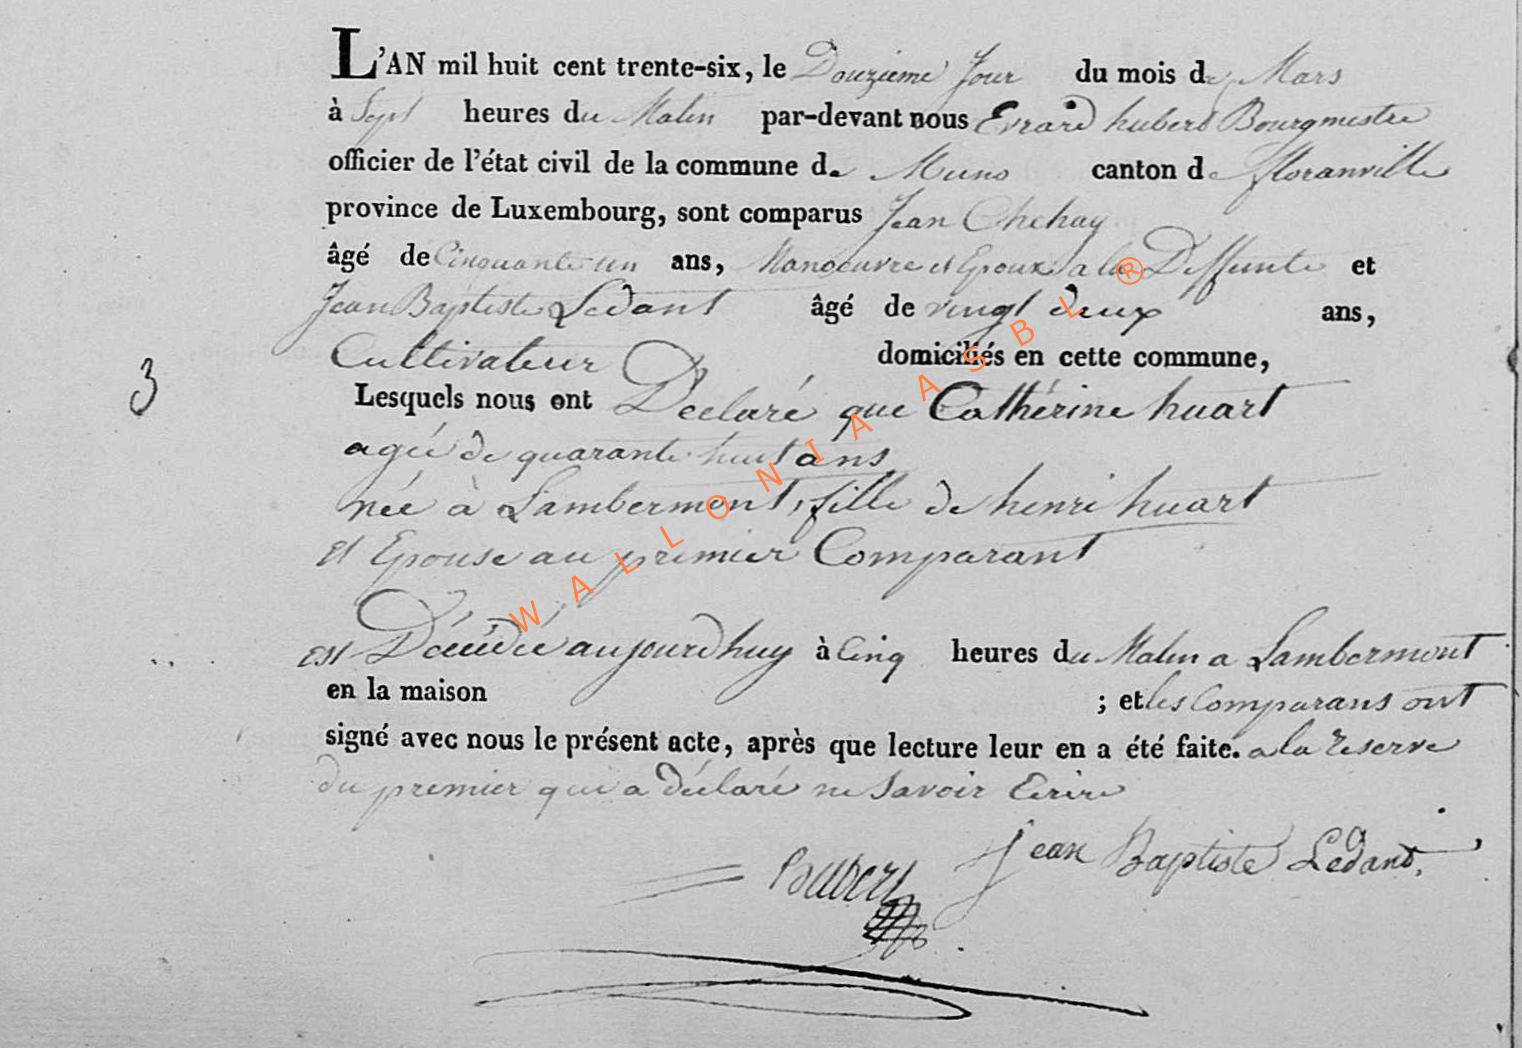 L'AN mil huit cent trente-six, le Douzieme Jour du mois de Mars
à Sept heures du Matin par-devant nous Evrard hubert Bourgmestre
officier de l'état civil de la commune de Muno canton de floranville
province de Luxembourg, sont comparus Jean Chehay
âgé de Cinquante un ans, Manoeuvre et Epoux a la Deffunte et
Jean Baptiste Ledant âgé de vingt deux ans,
Cultivateur domiciliés en cette commune,
3
Lesquels nous ont Declaré que Cathérine huart
agée de quarante huit ans
née à Lambermont, fille de henri huart
et Epouse au premier Comparant
est Décédée aujourdhuy à Cinq heures du Matin a Lambermont
en la maison ; et les Comparans ont
signé avec nous le présent acte, après que lecture leur en a été faite. a la reserve
du premier qui a déclaré ne Savoir Ecrire
Jean Baptiste Ledant,
WALLONIA ASBL ®